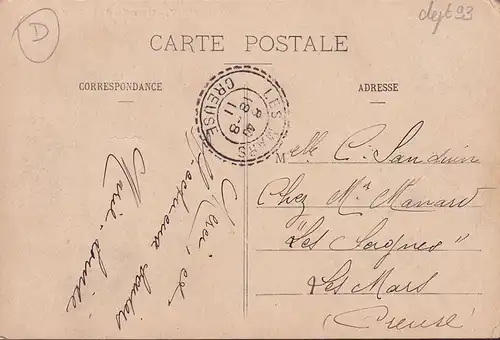 D
dept 23
CARTE POSTALE
CORRESPONDANCE
ADRESSE
LES MARS
CREUSE
Merci, et
affectueux baisers
Marie-Louise
Melle C. Sanduin
Chez Mr Manard
"Les Saignes"
Les Mars
(Creuse